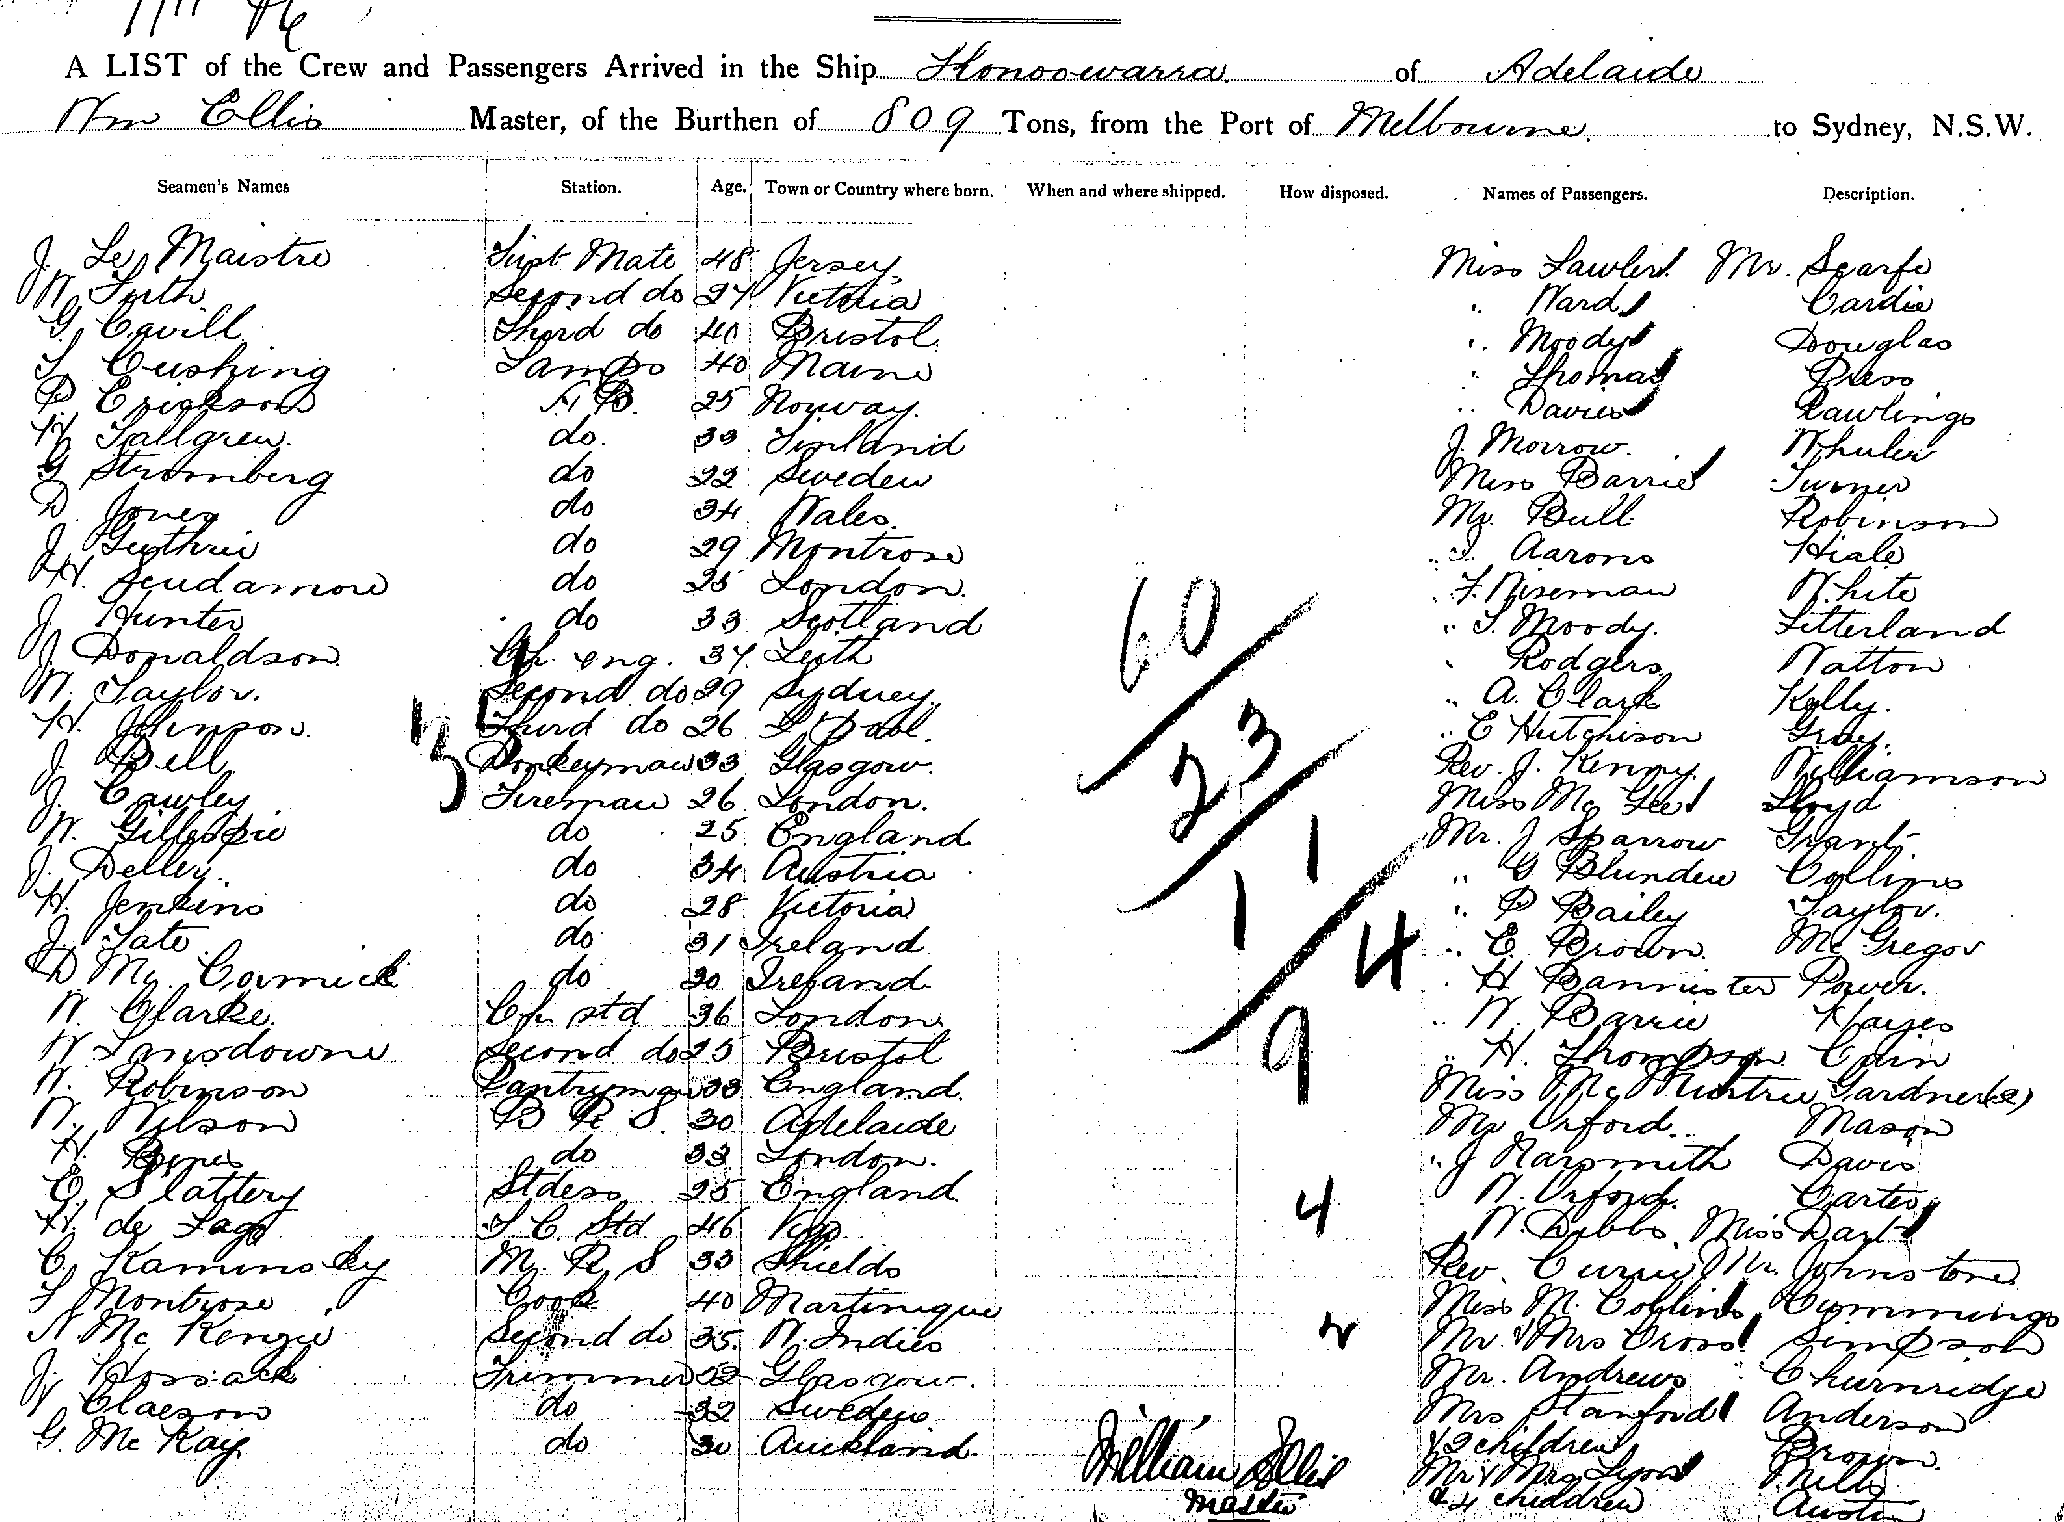 A LIST of the Crew and Passengers Arrived in the Ship Konoowarra of Adelaide
Wm Ellis Master, of the Burthen of 809 Tons, from the Port of Melbourne to Sydney, N.S.W.
Seamen's Names Station. Age. Town or Country where born. When and where shipped. How disposed. Names of Passengers. Description.
J. Le Maistre First Mate 48 Jersey. Miss Lawler Mr. Scarfe
W. Firth Second do 27 Victoria " Ward Cardie
G. Cavill Third do 40 Bristol. " Moody Douglas
T. Cushing Lamps 40 Maine " Thomas Press
P. Erickson A B. 25 Norway. " Davies Rawlings
H. Tallgren. do. 33 Finland J. Morrow. Whuler
G. Stromberg do 22 Sweden Miss Barrie Turner
D. Jones do 34 Wales. Mr. Bull Robinson
J. Guthrie do 29 Montrose " I. Aarons Hiale
H. Scudamore do 25 London. " F. Wiseman White
J. Hunter do 33 Scotland " S. Moody. Litterland
J. Donaldson. Ch eng. 37 Leith " Rodgers Watton
W. Taylor. Second do 29 Sydney. " A. Clark Kelly.
H. Johnson. Third do 26 L'pool. " E Hutchison Gray.
J. Bell Donkeyman 33 Glasgow. Rev. J. Kenny. Williamson
J. Cawley Fireman 26 London. Miss Mc Gee Lloyd
W. Gillespie do 25 England Mr. J Sparrow Grant
J. Delley. do 34 Austria " G Blunden Collins
H. Jenkins do 28 Victoria " P Bailey Taylor.
J. Tate do 31 Ireland " E. Brown. Mc Gregor
D Mc Cormick do 30 Ireland " H Bannister Power.
W. Clarke Ch std 36 London " W. Barrie Hayes
W Lansdowne Second do 25 Bristol " H. Thompson Cain
W. Robinson Pantryman 33 England. Miss Mc Murtrie Gardner (2)
W. Wilson B R S. 30 Adelaide Mr Orford. Mason
H. do 33 London. " J Narsmith Davis
C. Slattery Stdess 25 England W. Orford. Carter
H. de Lago S C Std 46 Vigo. W. Dibbs. Miss Dart
C. Kaminsky M. R S 33 Shields Rev. Currie Mr. Johnstone
F Montrose Cook 40 Martinique Miss M. Collins Cummings
N Mc Kenzie Second do 35. W. Indies Mr & Mrs Cross Simpson
J. Hossack Trimmer 22 Glasgow. Mr. Andrews Churnridge
V Claeson do 32 Sweden Mrs Stanford Anderson
G. Mc Kay. do 30 Auckland. & 2 children Brown.
Mr & Mrs Lyons Mills
& 4 children Austin
60
23
11
4
9
4
2
3
William Ellis
Master